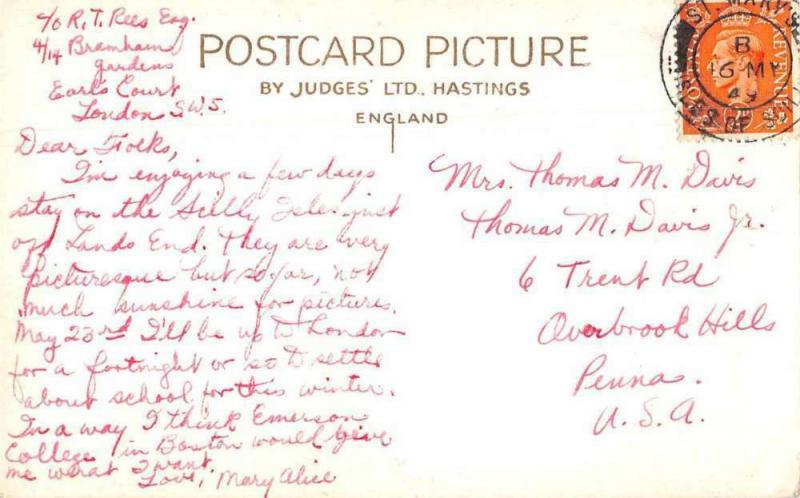 c/o R. T. Rees Esq.
4/14 Bramham
gardens
Earls Court
London S.W.5.
POSTCARD PICTURE
BY JUDGES' LTD., HASTINGS
ENGLAND
Dear Folks,
I'm enjoying a few days
stay on the Scilly Isles just
off Lands End. They are very
picturesque but so far, not
much sunshine for pictures.
May 23rd I'll be up to London
for a fortnight or so to settle
about school for this winter.
In a way I think Emerson
College in Boston would give
me what I want.
Love, Mary Alice
ST. MARY'S
B
16 MY
49
REVENUE
Mrs. Thomas M. Davis
Thomas M. Davis Jr.
6 Trent Rd
Overbrook Hills
Penna.
U.S.A.